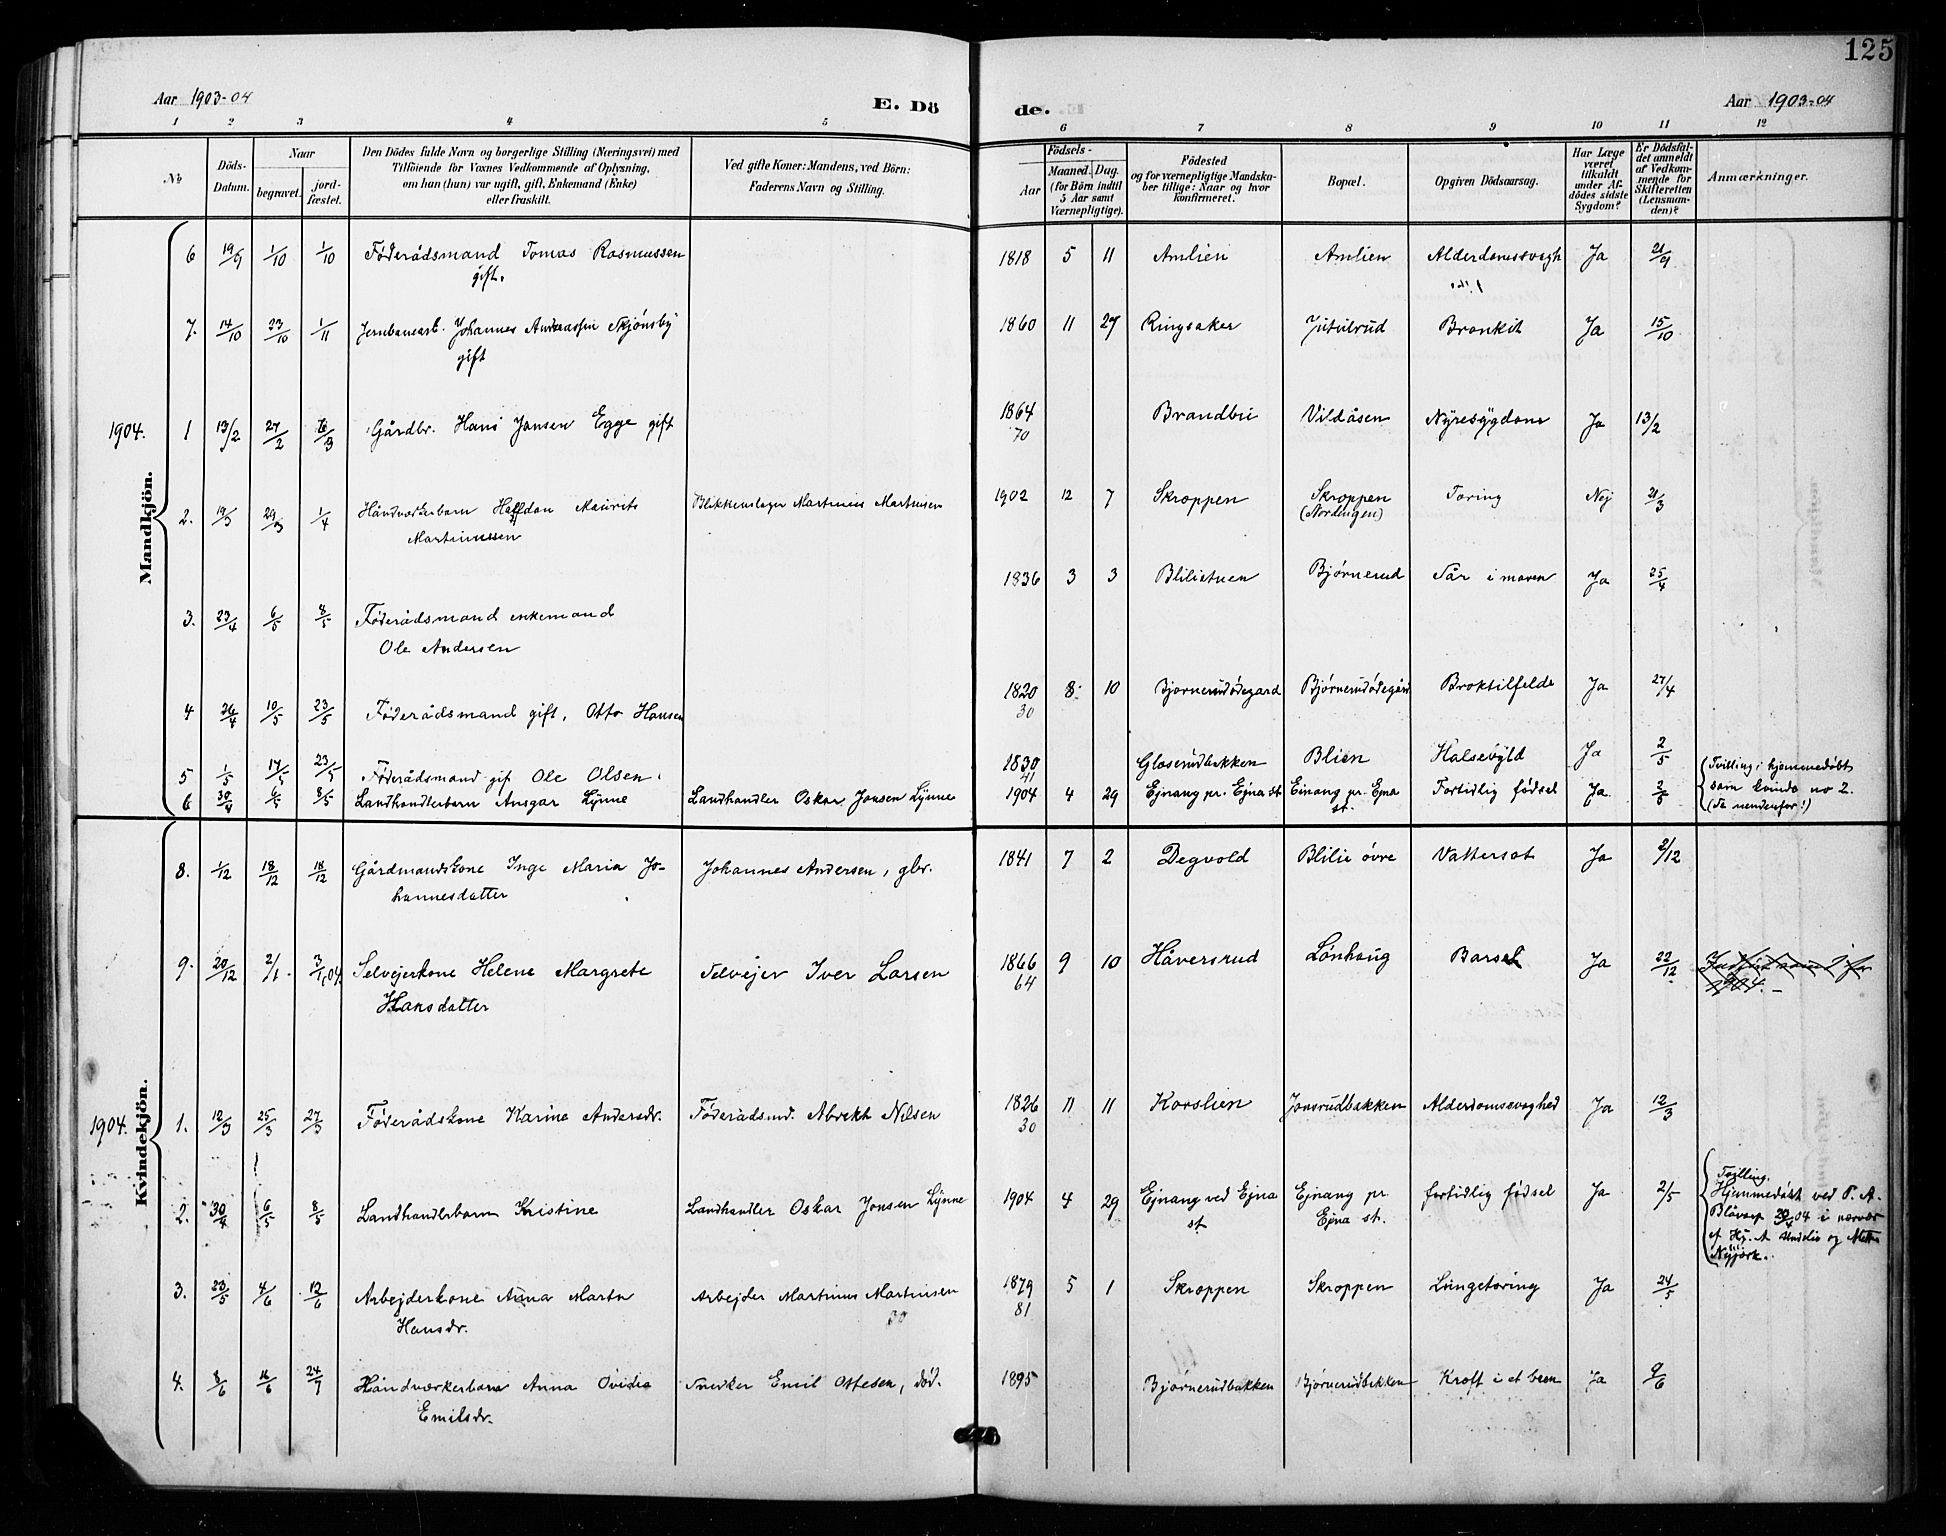 125
Aar 1903-04
E. Dö
de.
Aar 1903-04
1 2 3 4 5 6 7 8 9 10 11 12
No
Döds-
Datum.
Naar
begravet.
jord-
fæstet.
Den Dödes fulde Navn og borgerlige Stilling (Næringsvei) med
Tilföiende for Voxnes Vedkommende af Oplysning,
om han (hun) var ugift, gift, Enkemand (Enke)
eller fraskilt.
Ved gifte Koner: Mandens, ved Börn:
Faderens Navn og Stilling.
Födsels-
Aar
Maaned. Dag.
(for Börn indtil
5 Aar samt
Værnepligtige).
Födested
og for værnepligtige Mandska-
ber tillige: Naar og hvor
konfirmeret.
Bopæl.
Opgiven Dödsaarsag.
Har Læge
været
tilkaldt
under Af-
dödes sidste
Sygdom?
Er Dödsfal-
det anmeldt
af Vedkom-
mende for
Skifteretten
(Lensman-
den)?
Anmærkninger.
Mandkjön.
6 19/9 1/10 1/10 Føderådsmand Tomas Rasmussen 1818 5 11 Amlien Amlien Alderdomssvagh Ja 21/9
gift.
7. 14/10 23/10 1/11 Jernbanearb. Johannes Andreassen Skjønsby 1860 11 27 Ringsaker Jutulrud Bronkit Ja 15/10
gift
1904. 1 13/2 27/2 6/3 Gårdbr. Hans Jonsen Egge gift 1864 Brandbu Vildåsen Nyresygdom Ja 13/2
70
2. 19/3 29/3 1/4 Håndverkerbarn Halfdan Maurits Blikkenslager Martinius Martinsen 1902 12 7 Skroppen Skroppen Toring Nej 21/3
Martinussen (Nordengen)
3. 23/4 6/5 8/5 Føderådsmand enkemand 1836 3 3 Blilistuen Bjørnerud Sår i maven Ja 25/4
Ole Andersen
4 26/4 10/5 23/5 Føderådsmand gift, Otto Hansen 1820 8 10 Bjørnerudødegard Bjørnerudødegård Broktilfelde Ja 27/4
30
5 1/5 17/5 23/5 Føderådsmand gif Ole Olsen. 1830 Glaserudbakken Blien Halsebyld Ja 2/5
41
6 30/4 6/5 8/5 Landhandlerbarn Ansgar Lynne Landhandler Oskar Jonsen Lynne 1904 4 29 Ejnang pr. Ejna st Einang pr. Ejna st. Fortidlig fødsel Ja. 2/5
Tvilling; hjemmedøbt
som kvindo no 2.
(se nendenfor!)
Kvindekjön.
8. 1/12 18/12 18/12 Gårdmandskone Inge Maria Jo- Johannes Andersen, gbr. 1841 7 2 Degvold Blilie øvre Vattersot Ja 2/12
hannesdatter
9. 20/12 2/1 3/1 04 Selvejerkone Helene Margrete Selvejer Iver Larsen 1866 9 10 Håversrud Lønhaug Barsel Ja 22/12
Hansdatter 64
1904. 1. 12/3 25/3 27/3 Føderådskone Karine Andersdr. Føderådsmd. Albrekt Nilsen 1826 11 11 Korslien Jonsrudbakken Alderdomssvaghed Ja 12/3
30
2. 30/4 6/5 8/5 Landhandlerbarn Kristine Landhandler Oskar Jonsen Lynne 1904 4 29 Ejnang ved Ejna st Ejnang pr. Ejna st. fortidlig fødsel Ja 2/5
Tvilling.
Hjemmedøbt ved P. A.
30/4 04 i nærvær
af Hj. A og
3. 23/5 4/6 12/6 Arbejderkone Anna Marta Arbejder Martinus Martinsen 1879 5 1 Skroppen Skroppen Lungetoring Ja 24/5
Hansdr. 30 81
4. 8/6 16/6 24/7 Håndværkerbarn Anna Ovidia Snedker Emil Ottesen, død. 1895 Bjørnerudbakken Bjørnerudbakken Kræft i et been Ja 9/6
Emilsdr.